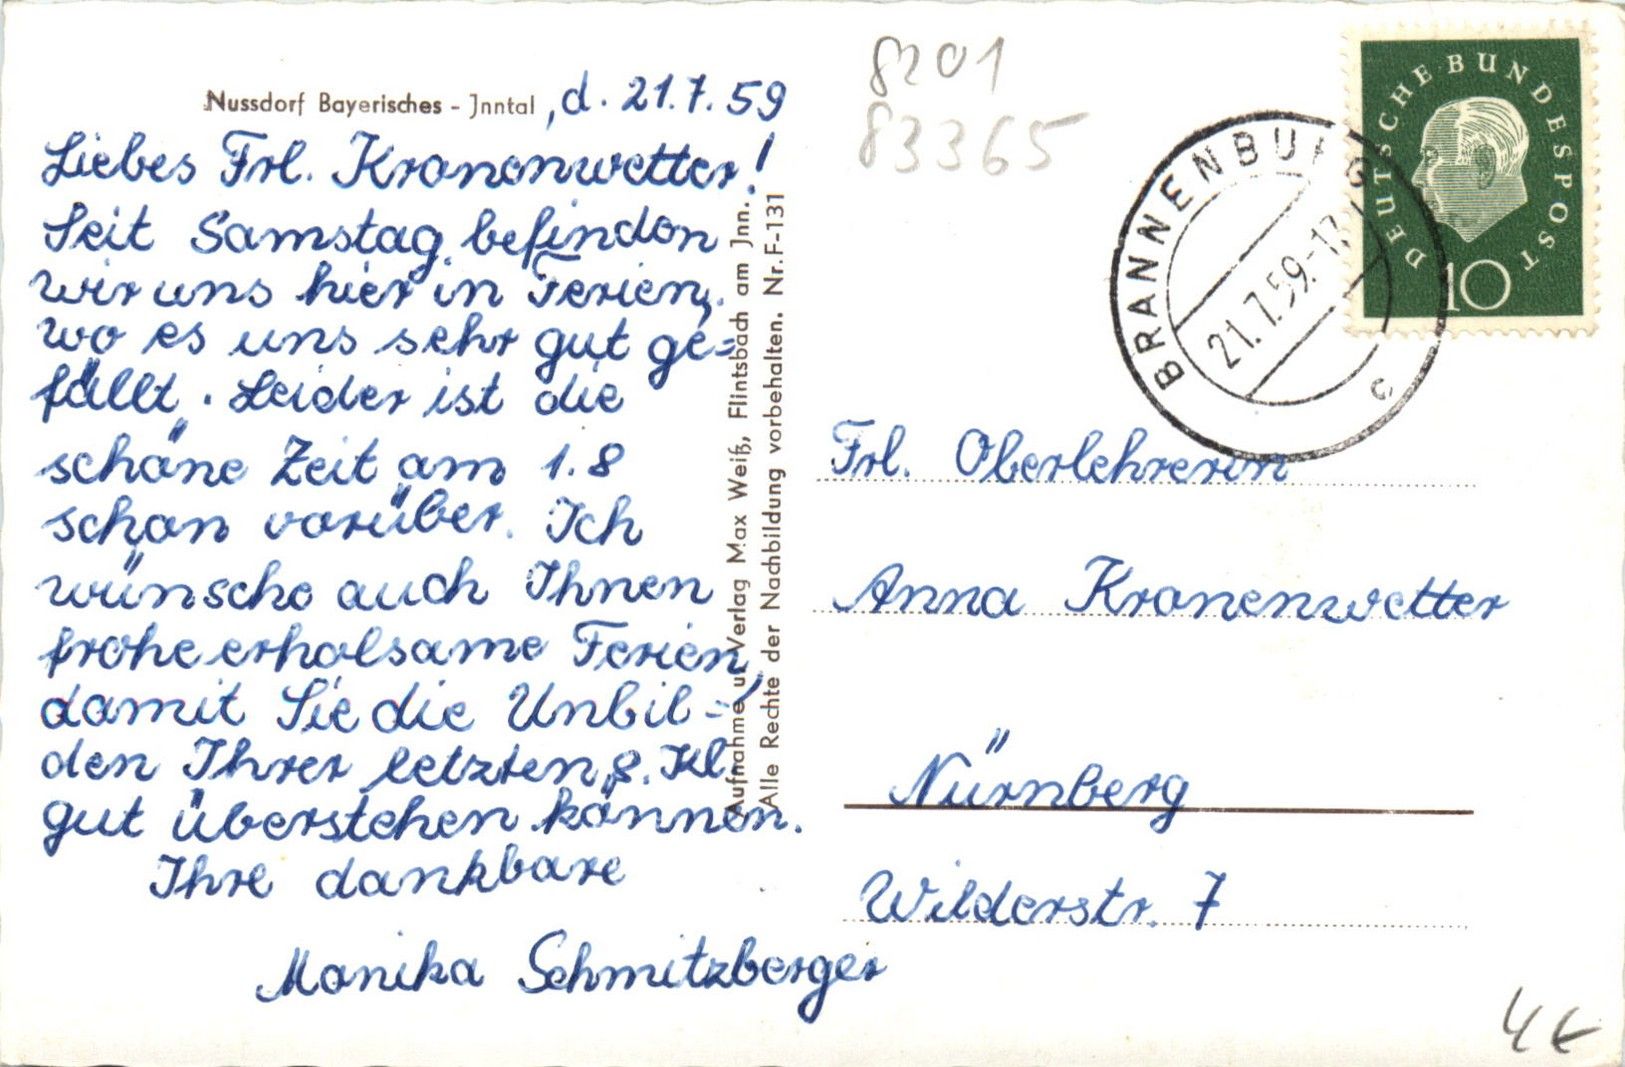 Nussdorf Bayerisches - Jnntal, d. 21.7.59
Liebes Frl. Kronenwetter!
Seit Samstag befinden
wir uns hier in Ferien,
wo es uns sehr gut ge=
fällt. Leider ist die
schöne Zeit am 1.8
schon vorüber. Ich
wünsche auch Ihnen
frohe erholsame Ferien,
damit Sie die Unbil=
den Ihrer letzten 8. Kl.
gut überstehen können.
Ihre dankbare
Monika Schmitzberger
Aufnahme u. Verlag Max Weiß, Flintsbach am Jnn.
Alle Rechte der Nachbildung vorbehalten. Nr. F-131
8201
83365
BRANNENBURG
21.7.59.-17
c
DEUTSCHE BUNDESPOST
10
Frl. Oberlehrerin
Anna Kronenwetter
Nürnberg
Wilderstr. 7
4€